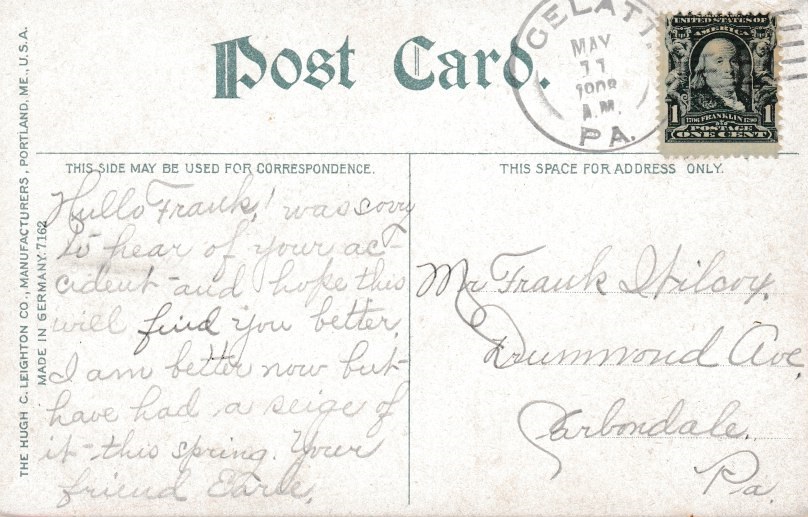 Post Card.
GELATT.
MAY
11
1908
A.M.
PA.
UNITED STATES OF
AMERICA
1706 FRANKLIN 1790
1 POSTAGE 1
ONE CENT
THIS SIDE MAY BE USED FOR CORRESPONDENCE.
THIS SPACE FOR ADDRESS ONLY.
Hullo Frank! was sorry
to hear of your ac-
cident and hope this
will find you better,
I am better now but
have had a seige of
it this spring. Your
friend Earle,
Mr Frank Wilcox,
Drummond Ave,
Carbondale,
Pa.
THE HUGH C. LEIGHTON CO., MANUFACTURERS, PORTLAND, ME., U.S.A.
MADE IN GERMANY. 7162